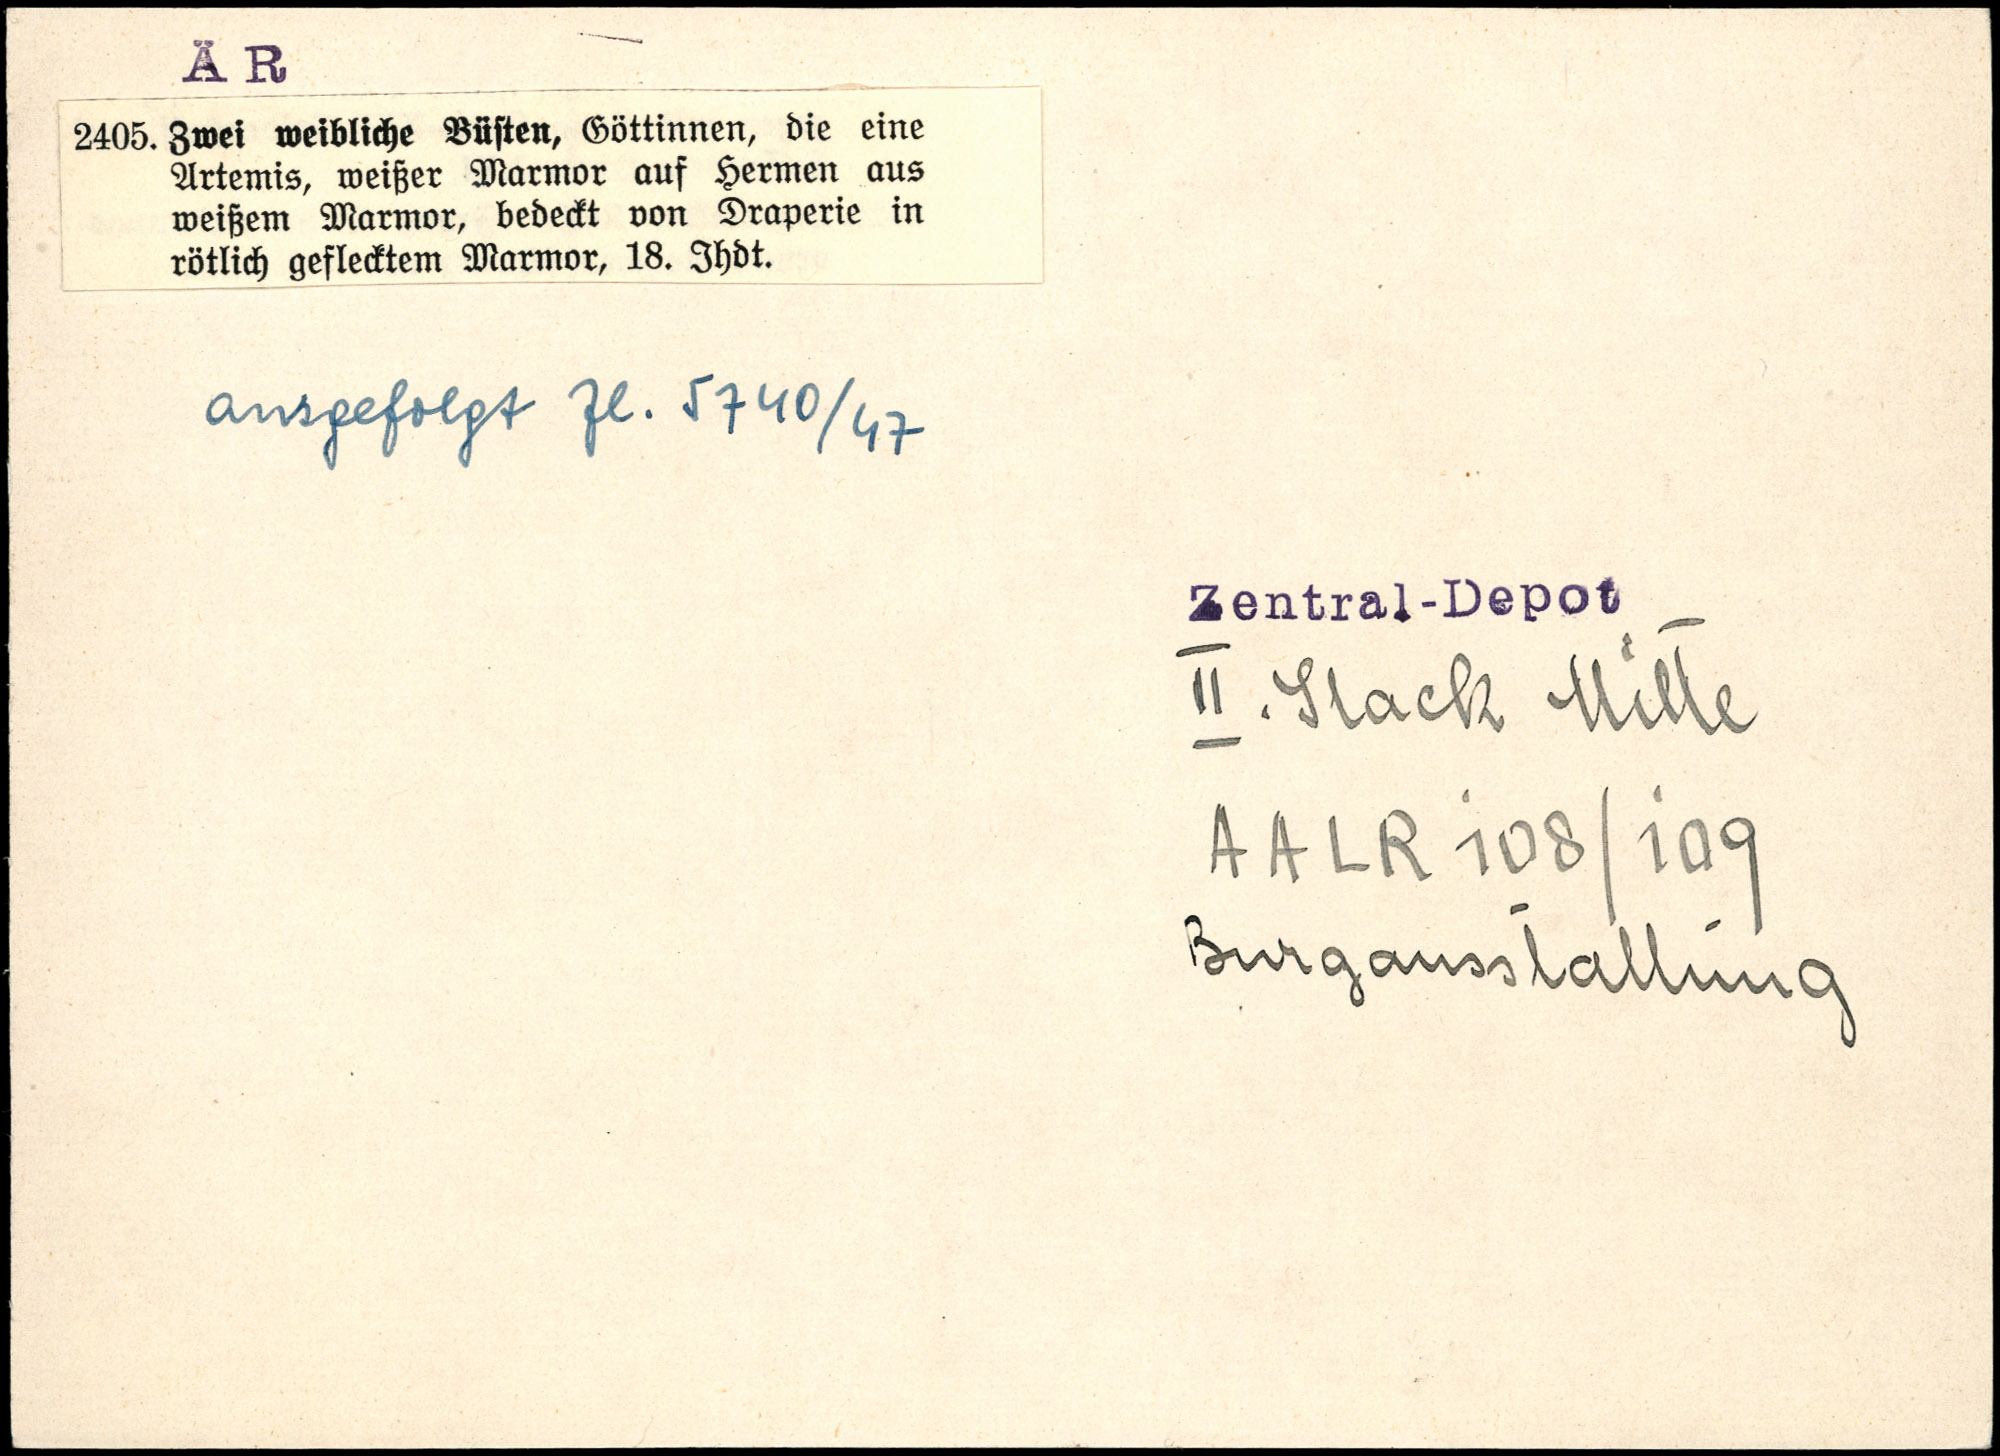 ÄR
2405. Zwei weibliche Büsten, Göttinnen, die eine
Artemis, weißer Marmor auf Hermen aus
weißem Marmor, bedeckt von Draperie in
rötlich geflecktem Marmor, 18. Jhdt.
ausgefolgt Zl. 5740/47
Zentral-Depot
II. Stock Mitte
AALR 108/109
Burgausstallung